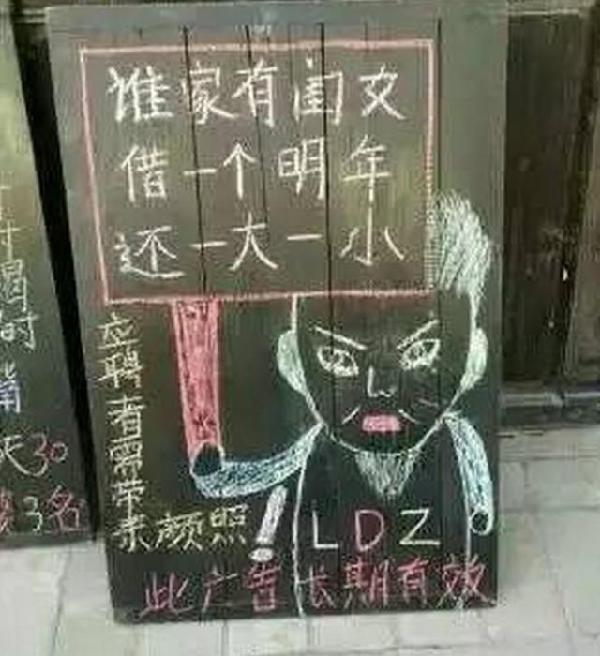 谁家有闺女
借一个明年
还一大一小
应聘者需带来颜照!
LDZ
此广告长期有效
天30
3名